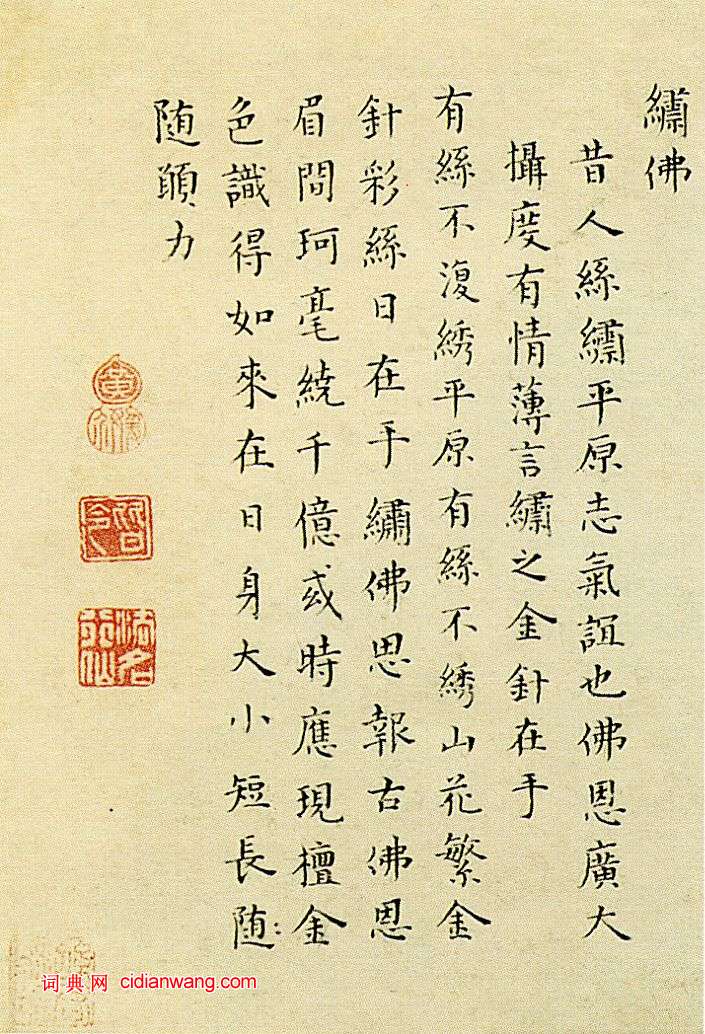 繡佛
昔人絲繡平原志氣誼也佛恩廣大
攝度有情薄言繡之金針在手
有絲不復綉平原有絲不綉山花繁金
針彩絲日在手繡佛思報古佛恩
眉間珂毫繞千億或時應現檀金
色識得如來在日身大小短長随
随願力
词典网 cidianwang.com